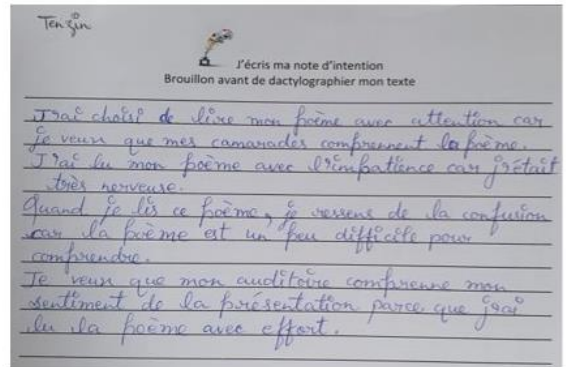 Tenzin
J'écris ma note d'intention
Brouillon avant de dactylographier mon texte
J'ai choisi de lire mon poème avec attention car
je veux que mes camarades comprennent la poème.
J'ai lu mon poème avec l'impatience car j'était
très nerveuse.
Quand je lis ce poème, je ressens de la confusion
car la poème est un peu difficile pour
comprendre.
Je veux que mon auditoire comprenne mon
sentiment de la présentation parce que j'ai
lu la poème avec effort.